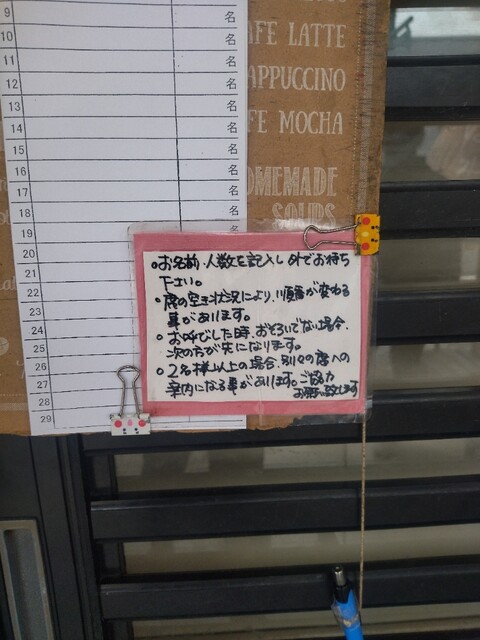 9 名
10 名
11 名
12 名
13 名
14 名
15 名
16 名
17 名
18 名
19 名
20
21
22
23
24
25
26
27
28
29
AFE LATTE
APPUCCINO
FE MOCHA
OMEMADE
SOUPS
•お名前・人数を記入し外でお待ち
下さい。
•席の空き状況により、順番が変わる
事があります。
•お呼びした時、おそろいでない場合、
次の方が先になります。
•2名様以上の場合、別々の席への
案内になる事があります。ご協力
お願い致します